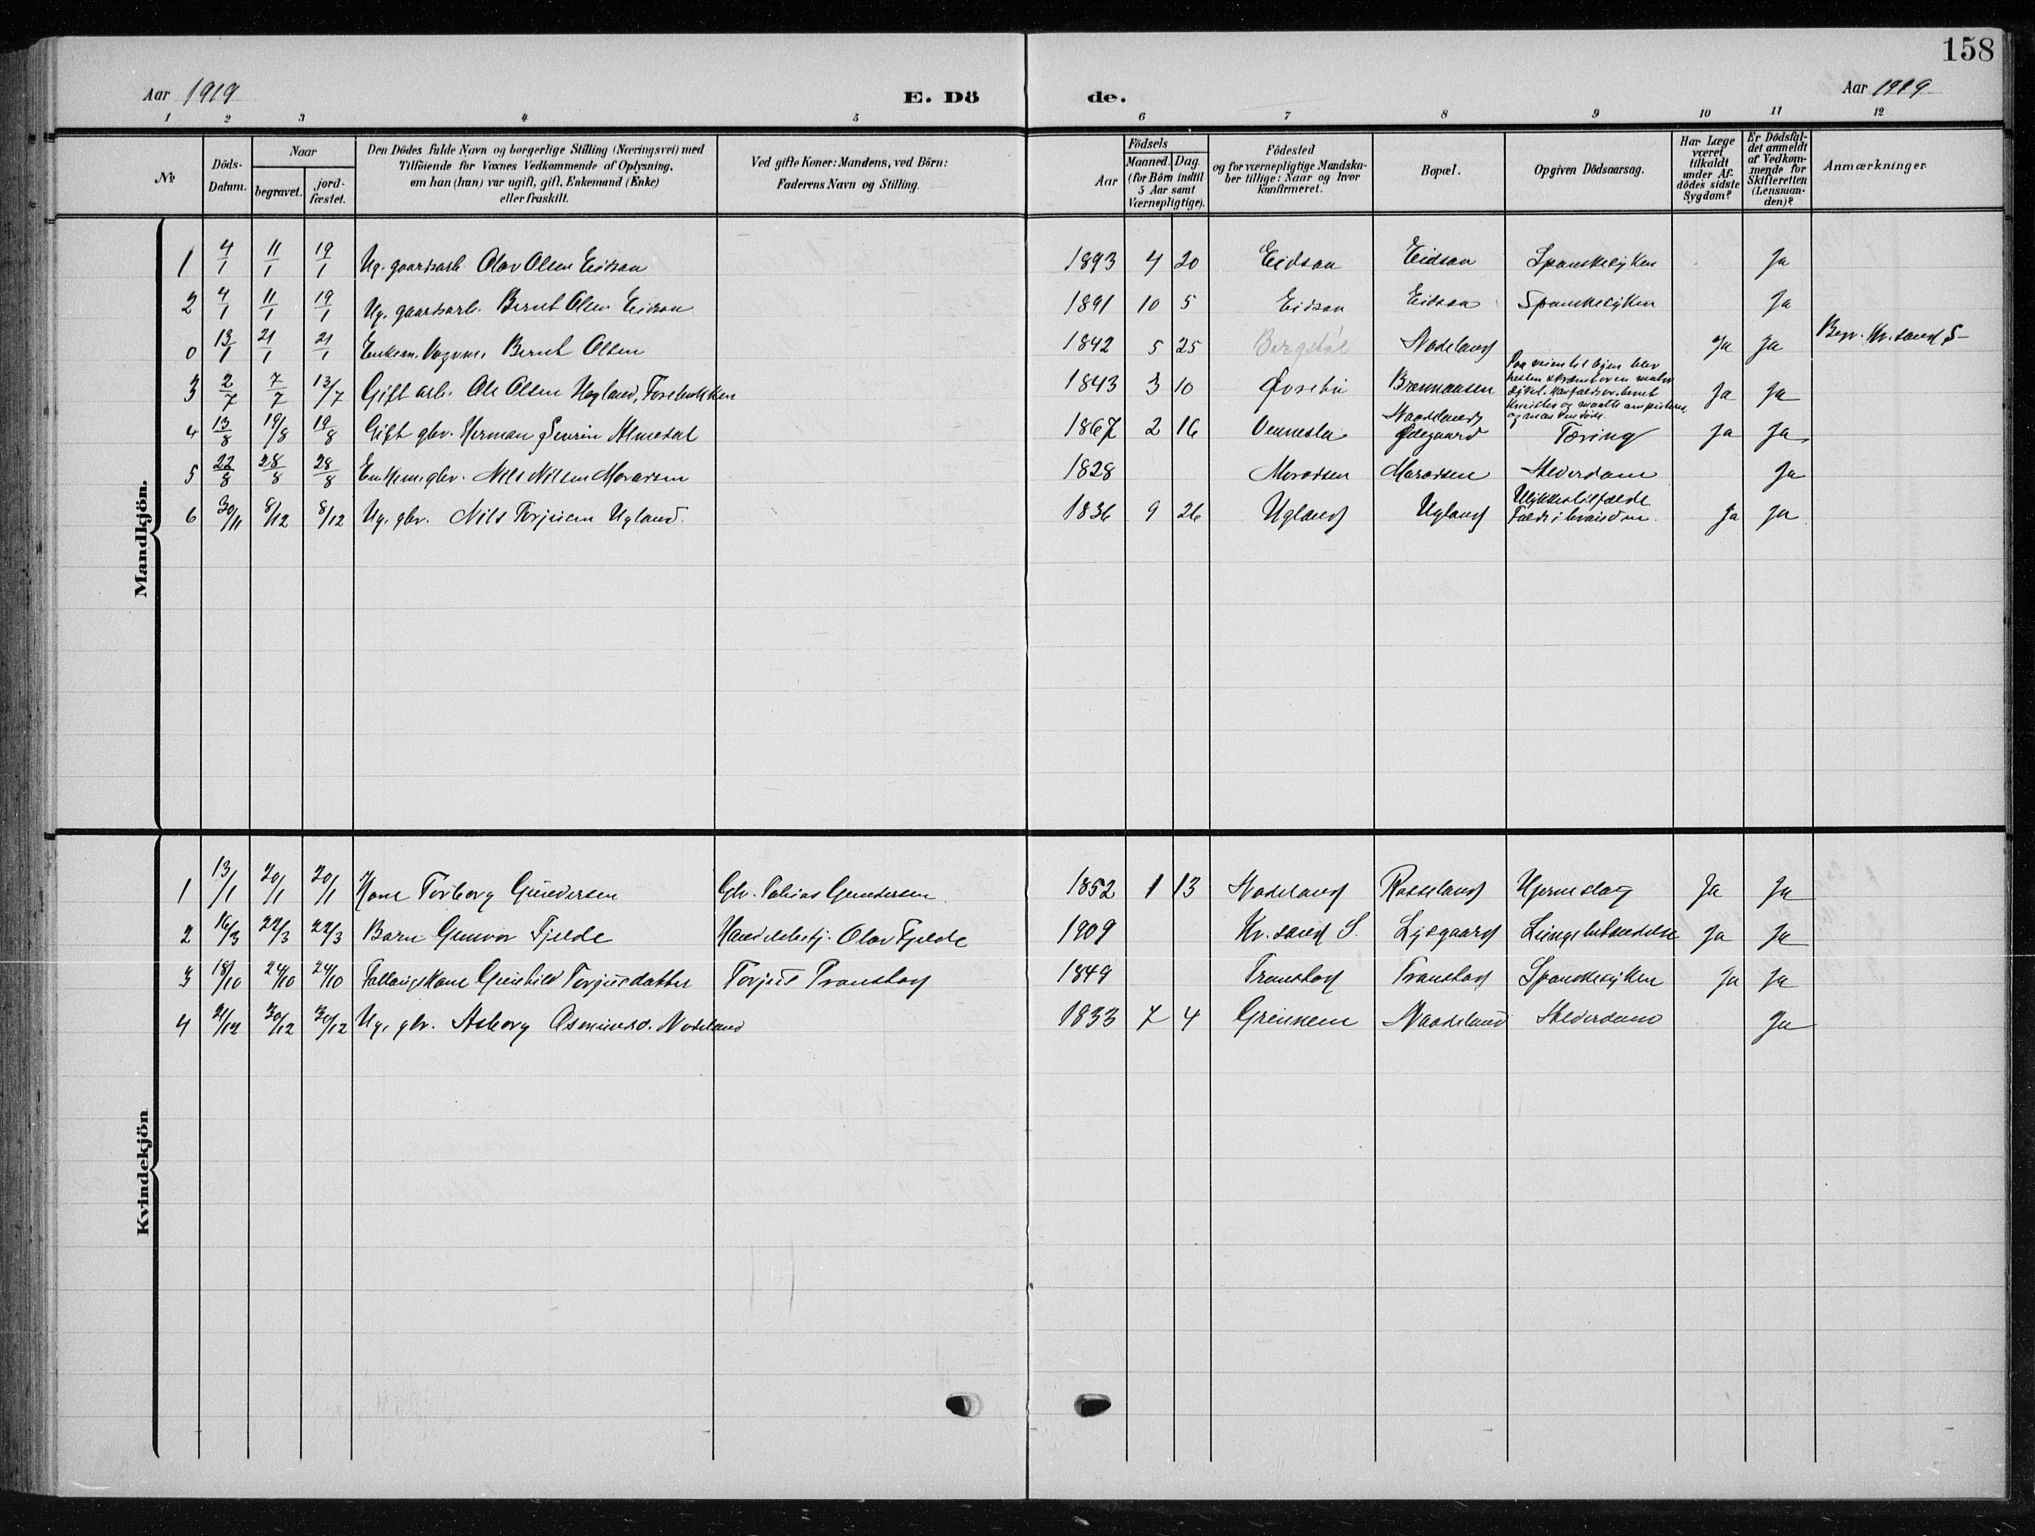 158
Aar 1919 E. Dö de. Aar 1919
1 2 3 4 5 6 7 8 9 10 11 12
№ Döds-Datum. Naar begravet. jord-fæstet. Den Dödes fulde Navn og borgerlige Stilling (Næringsvei) med Tilföiende for Voxnes Vedkommende af Oplysning, om han (hun) var ugift, gift, Enkemand (Enke) eller fraskilt. Ved gifte Koner: Mandens, ved Börn: Faderens Navn og Stilling. Aar Födsels Maaned. Dag. (for Börn indtil 5 Aar samt Værnepligtige). Födested og for værnepligtige Mandskaber tillige: Naar og hvor konfirmeret. Bopæl. Opgiven Dödsaarsag. Har Læge været tilkaldt under Afdödes sidste Sygdom? Er Dödsfaldet anmeldt af Vedkommende for Skifteretten (Lensmanden)? Anmærkninger
Mandkjön.
1 4/1 11/1 19/1 Ug. gaardsarb. Olav Olsen Eidsaa 1893 4 20 Eidsaa Eidsaa Spanskesyken Ja
2 4/1 11/1 19/1 Ug. gaardsarb. Bernt Olsen Eidsaa 1891 10 5 Eidsaa Eidsaa Spanskesyken Ja
0 13/1 21/1 21/1 Enkem. Vognm. Bernt Olsen 1842 5 25 Bergstøl Nodeland Ja Ja Begr. Kr.sand S
3 2/7 7/7 13/7 Gift arb. Ole Olsen Hagland, Fosebekken 1843 3 10 Øvrebø Brænnaasen Paa veien til byen blev hesten skræmt Ja Ja
4 13/8 19/8 19/8 Gift gbr. Herman Severin Almedal 1867 2 16 Vennesla Naadelands Ødegaard Tæring Ja Ja
5 22/8 28/8 28/8 Enkem. gbr. Nils Nilsen Moradsen 1828 Moradsen Moradsen Alderdom Ja
6 30/11 8/12 8/12 Ug. gbr. Nils Torjusen Ugland. 1836 9 26 Ugland Ugland Ulykkestilfælde Faldt i Ja Ja
Kvindekjön
1 13/1 20/1 20/1 Kone Torborg Gundersen Gbr. Tobias Gundersen 1852 1 13 Nodeland Rosseland Hjerneslag Ja Ja
2 16/3 22/3 22/3 Barn Gunvor Fjelde Handelsbestj. Olav Fjelde 1909 Kr.sand S. Lysgaard Lungebetændelse Ja Ja
3 18/10 24/10 24/10 Føllaugskone Gunhild Torjusdatter Torjus Tronstad 1849 Tronstad Tronstad Spanskesyken Ja Ja
4 21/12 30/12 30/12 Ug. gbr. Asborg Asmundsd. Nodeland 1833 7 4 Greinnem Naadeland Alderdom Ja